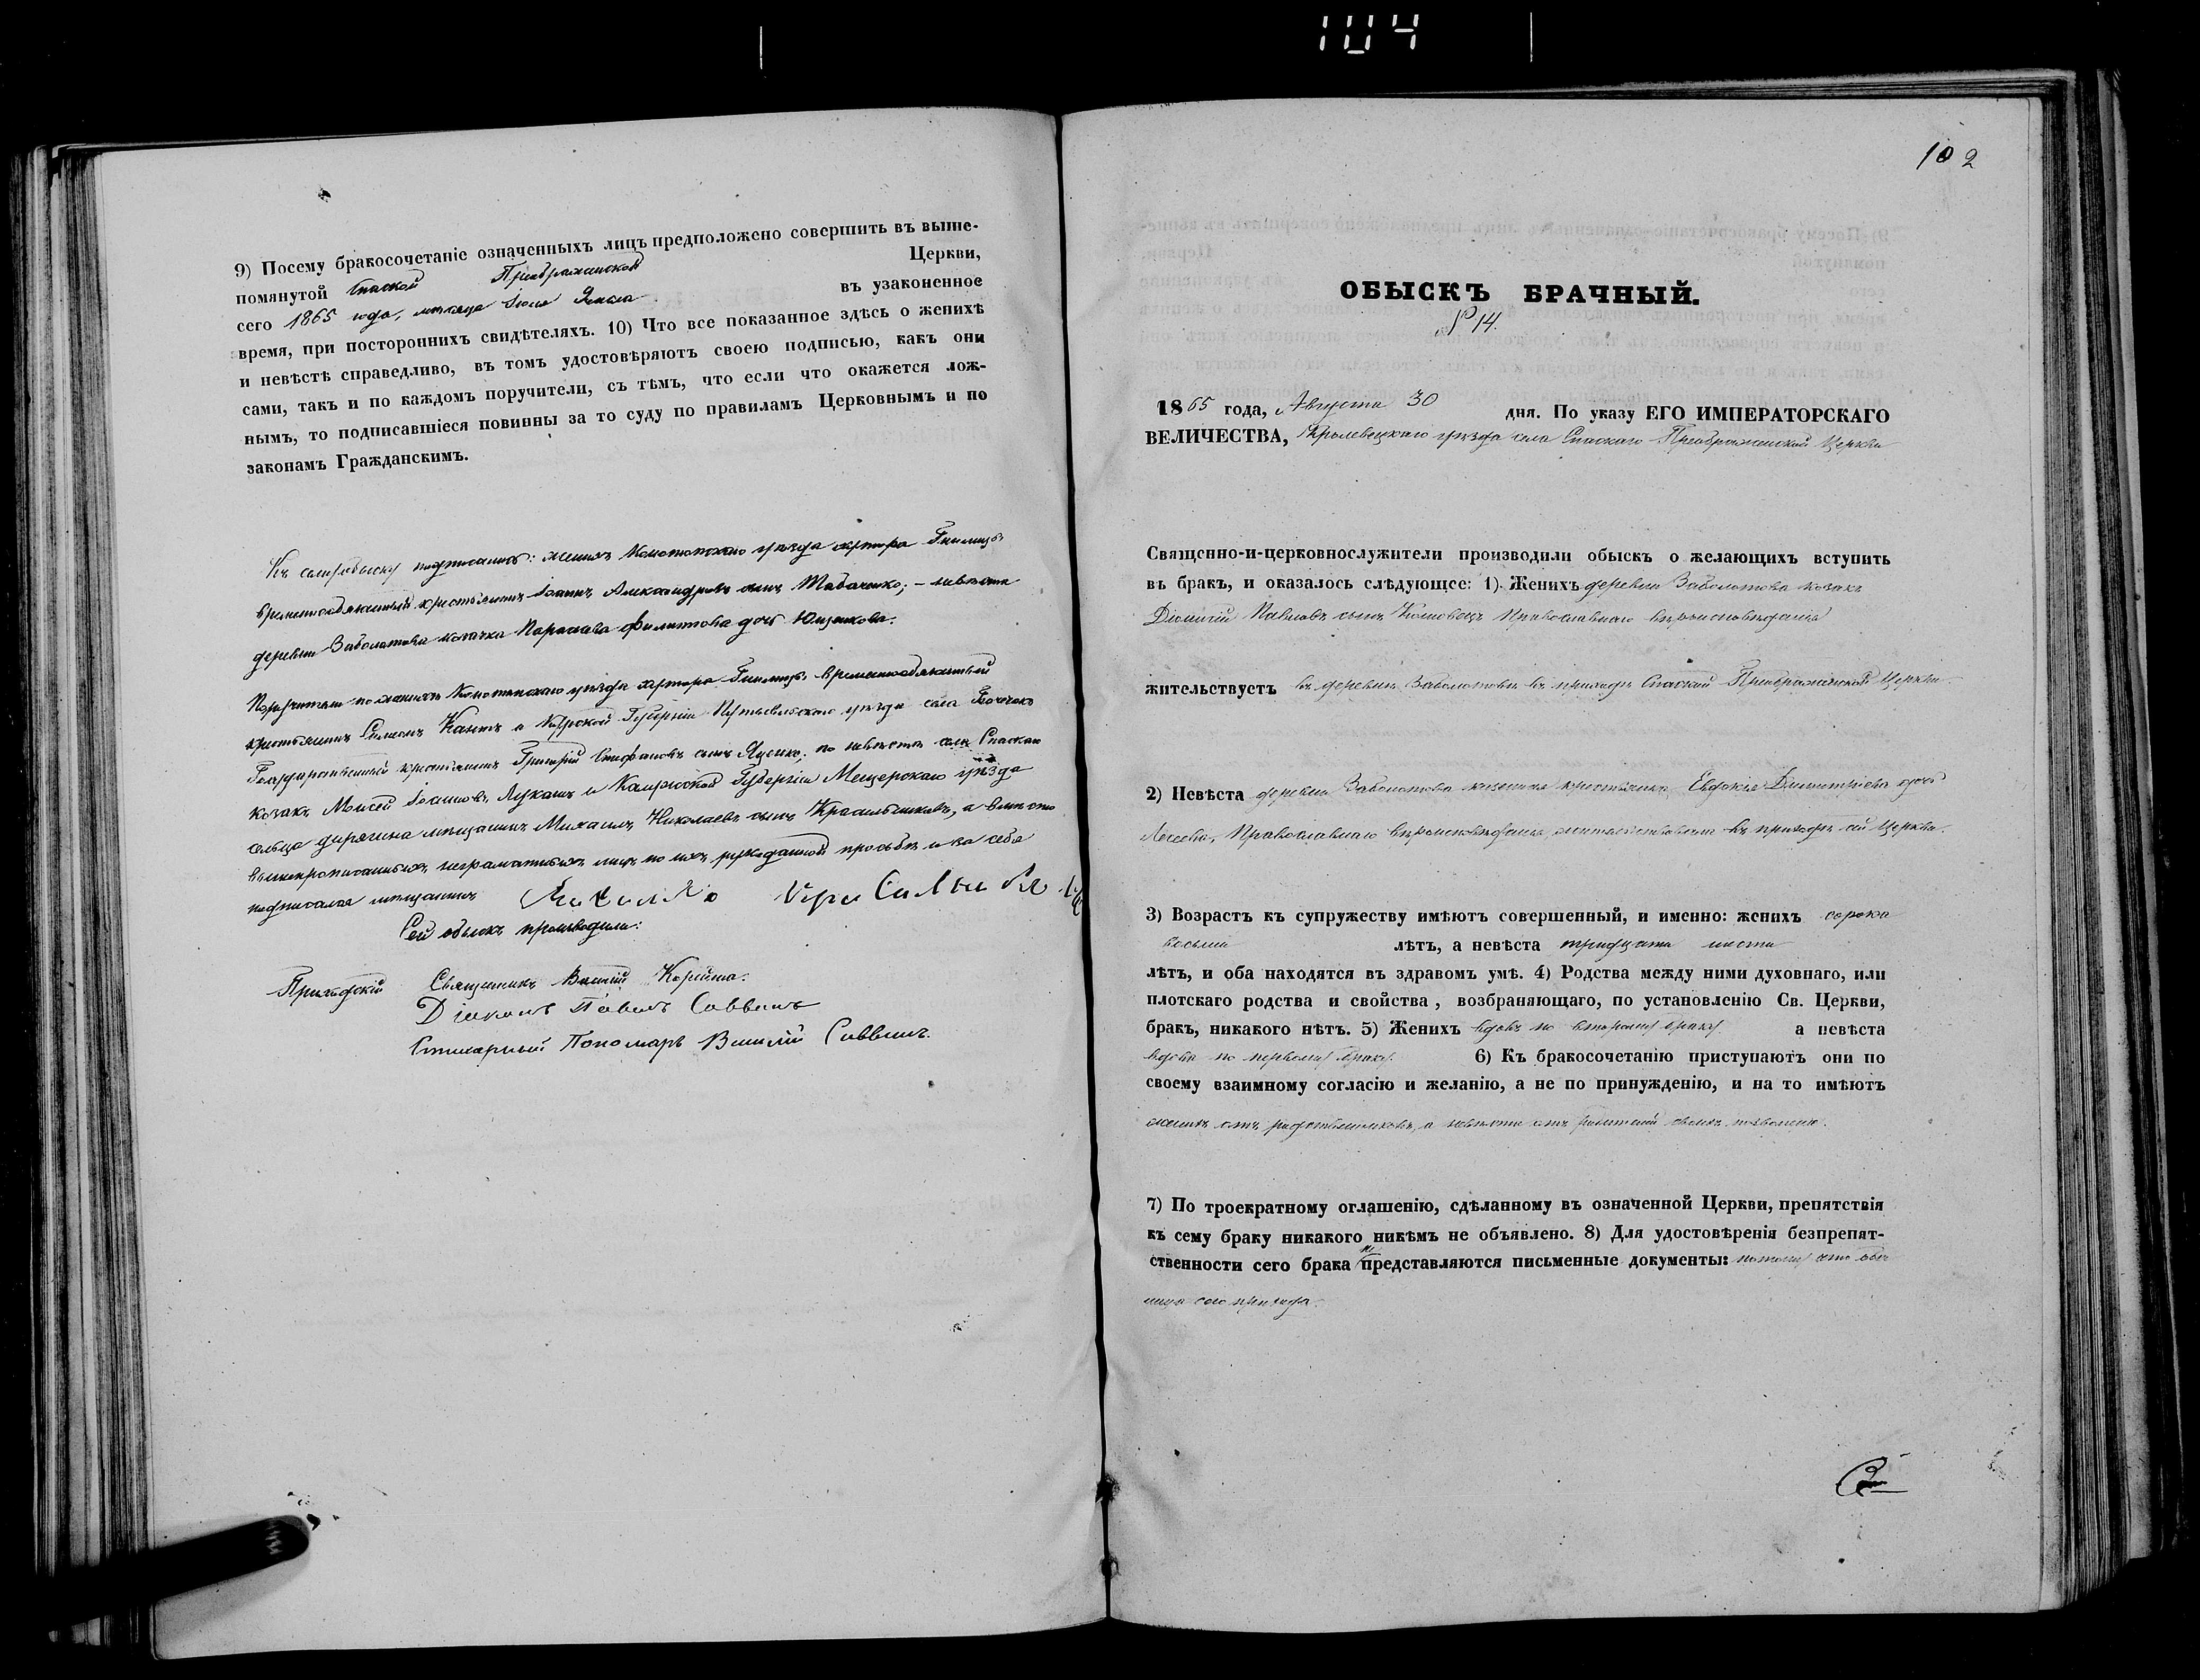 104
9) Посему бракосочетаніе означенныхъ лицъ предположено совершить въ выше-
помянутой Спаской Преображенской Церкви,
сего 1865 года, месяца Іюля въ узаконенное
время, при постороннихъ свидѣтеляхъ. 10) Что все показанное здѣсь о женихѣ
и невѣстѣ справедливо, въ томъ удостовѣряютъ своею подписью, какъ они
сами, такъ и по каждомъ поручители, съ тѣмъ, что если что окажется лож-
нымъ, то подписавшіеся повинны за то суду по правиламъ Церковнымъ и по
законамъ Гражданскимъ.
Къ сему обыску подписались: женихъ Конотопскаго уѣзда хутора Гнилицъ
временнообязанный крестьянинъ Іоаннъ Александровъ сынъ Табаченко; – невѣста
деревни Заболотова козачка Параскева Филиппова дочь Ющенкова.
Поручители по женихѣ Конотопскаго уѣзда хутора Гнилицъ временнообязанный
крестьянинъ Симеонъ и Курской Губерніи Путивльскаго уѣзда села Бочечокъ
Государственный крестьянинъ Григорій Стефановъ сынъ Яценко; по невѣстѣ села Спаскаго
козакъ Моисей Іоанновъ Лукашъ и Калужской Губерніи Мещерскаго уѣзда
сельца мещанинъ Михаилъ Николаевъ сынъ Красильниковъ, а вмѣсто
вышепрописанныхъ неграматныхъ лицъ по ихъ рукоданной прозьбѣ и за себя
подписался мещанинъ
Сей обыскъ производили:
Приходскій Священникъ Корейша.
Діаконъ Павелъ Саввинъ
Стихарный Пономарь Василій Саввинъ.
102
ОБЫСКЪ БРАЧНЫЙ.
№ 14.
1865 года, Августа 30 дня. По указу ЕГО ИМПЕРАТОРСКАГО
ВЕЛИЧЕСТВА, Кролевецкаго уѣзда села Спаскаго Преображенской Церкви
Священно-и-церковнослужители производили обыскъ о желающихъ вступить
въ бракъ, и оказалось слѣдующее: 1) Женихъ деревни Заболотова козакъ
Павловъ сынъ Православнаго вѣроисповѣданія
жительствуетъ въ деревни Заболотовѣ въ приходѣ Спаской Преображенской Церкви.
2) Невѣста деревни Заболотова казенная крестьянка Евдокія Димитріева дочь
Православнаго вѣроисповѣданія, жительствовала въ приходѣ сей Церкви.
3) Возрастъ къ супружеству имѣютъ совершенный, и именно: женихъ сорока
восьми лѣтъ, а невѣста тридцати шести
лѣтъ, и оба находятся въ здравомъ умѣ. 4) Родства между ними духовнаго, или
плотскаго родства и свойства, возбраняющаго, по установленію Св. Церкви,
бракъ, никакого нѣтъ. 5) Женихъ вдовъ по второму браку а невѣста
вдова по первому браку. 6) Къ бракосочетанію приступаютъ они по
своему взаимному согласію и желанію, а не по принужденію, и на то имѣютъ
женихъ отъ родственниковъ, а невѣста отъ родителей своихъ позволеніе.
7) По троекратному оглашенію, сдѣланному въ означенной Церкви, препятствія
къ сему браку никакого никѣмъ не объявлено. 8) Для удостовѣренія безпрепят-
ственности сего брака не представляются письменные документы: потому что оба
лица сего прихода.